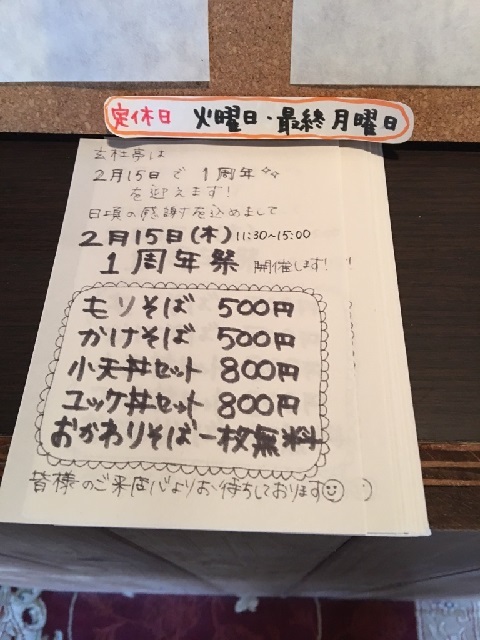 定休日 火曜日・最終月曜日
玄社亭は
2月15日で1周年
を迎えます!
日頃の感謝を込めまして
2月15日(木) 11:30~15:00
1周年祭 開催します!
もりそば 500円
かけそば 500円
小天丼セット 800円
ユッケ丼セット 800円
おかわりそば一枚無料
皆様のご来店心よりお待ちしております